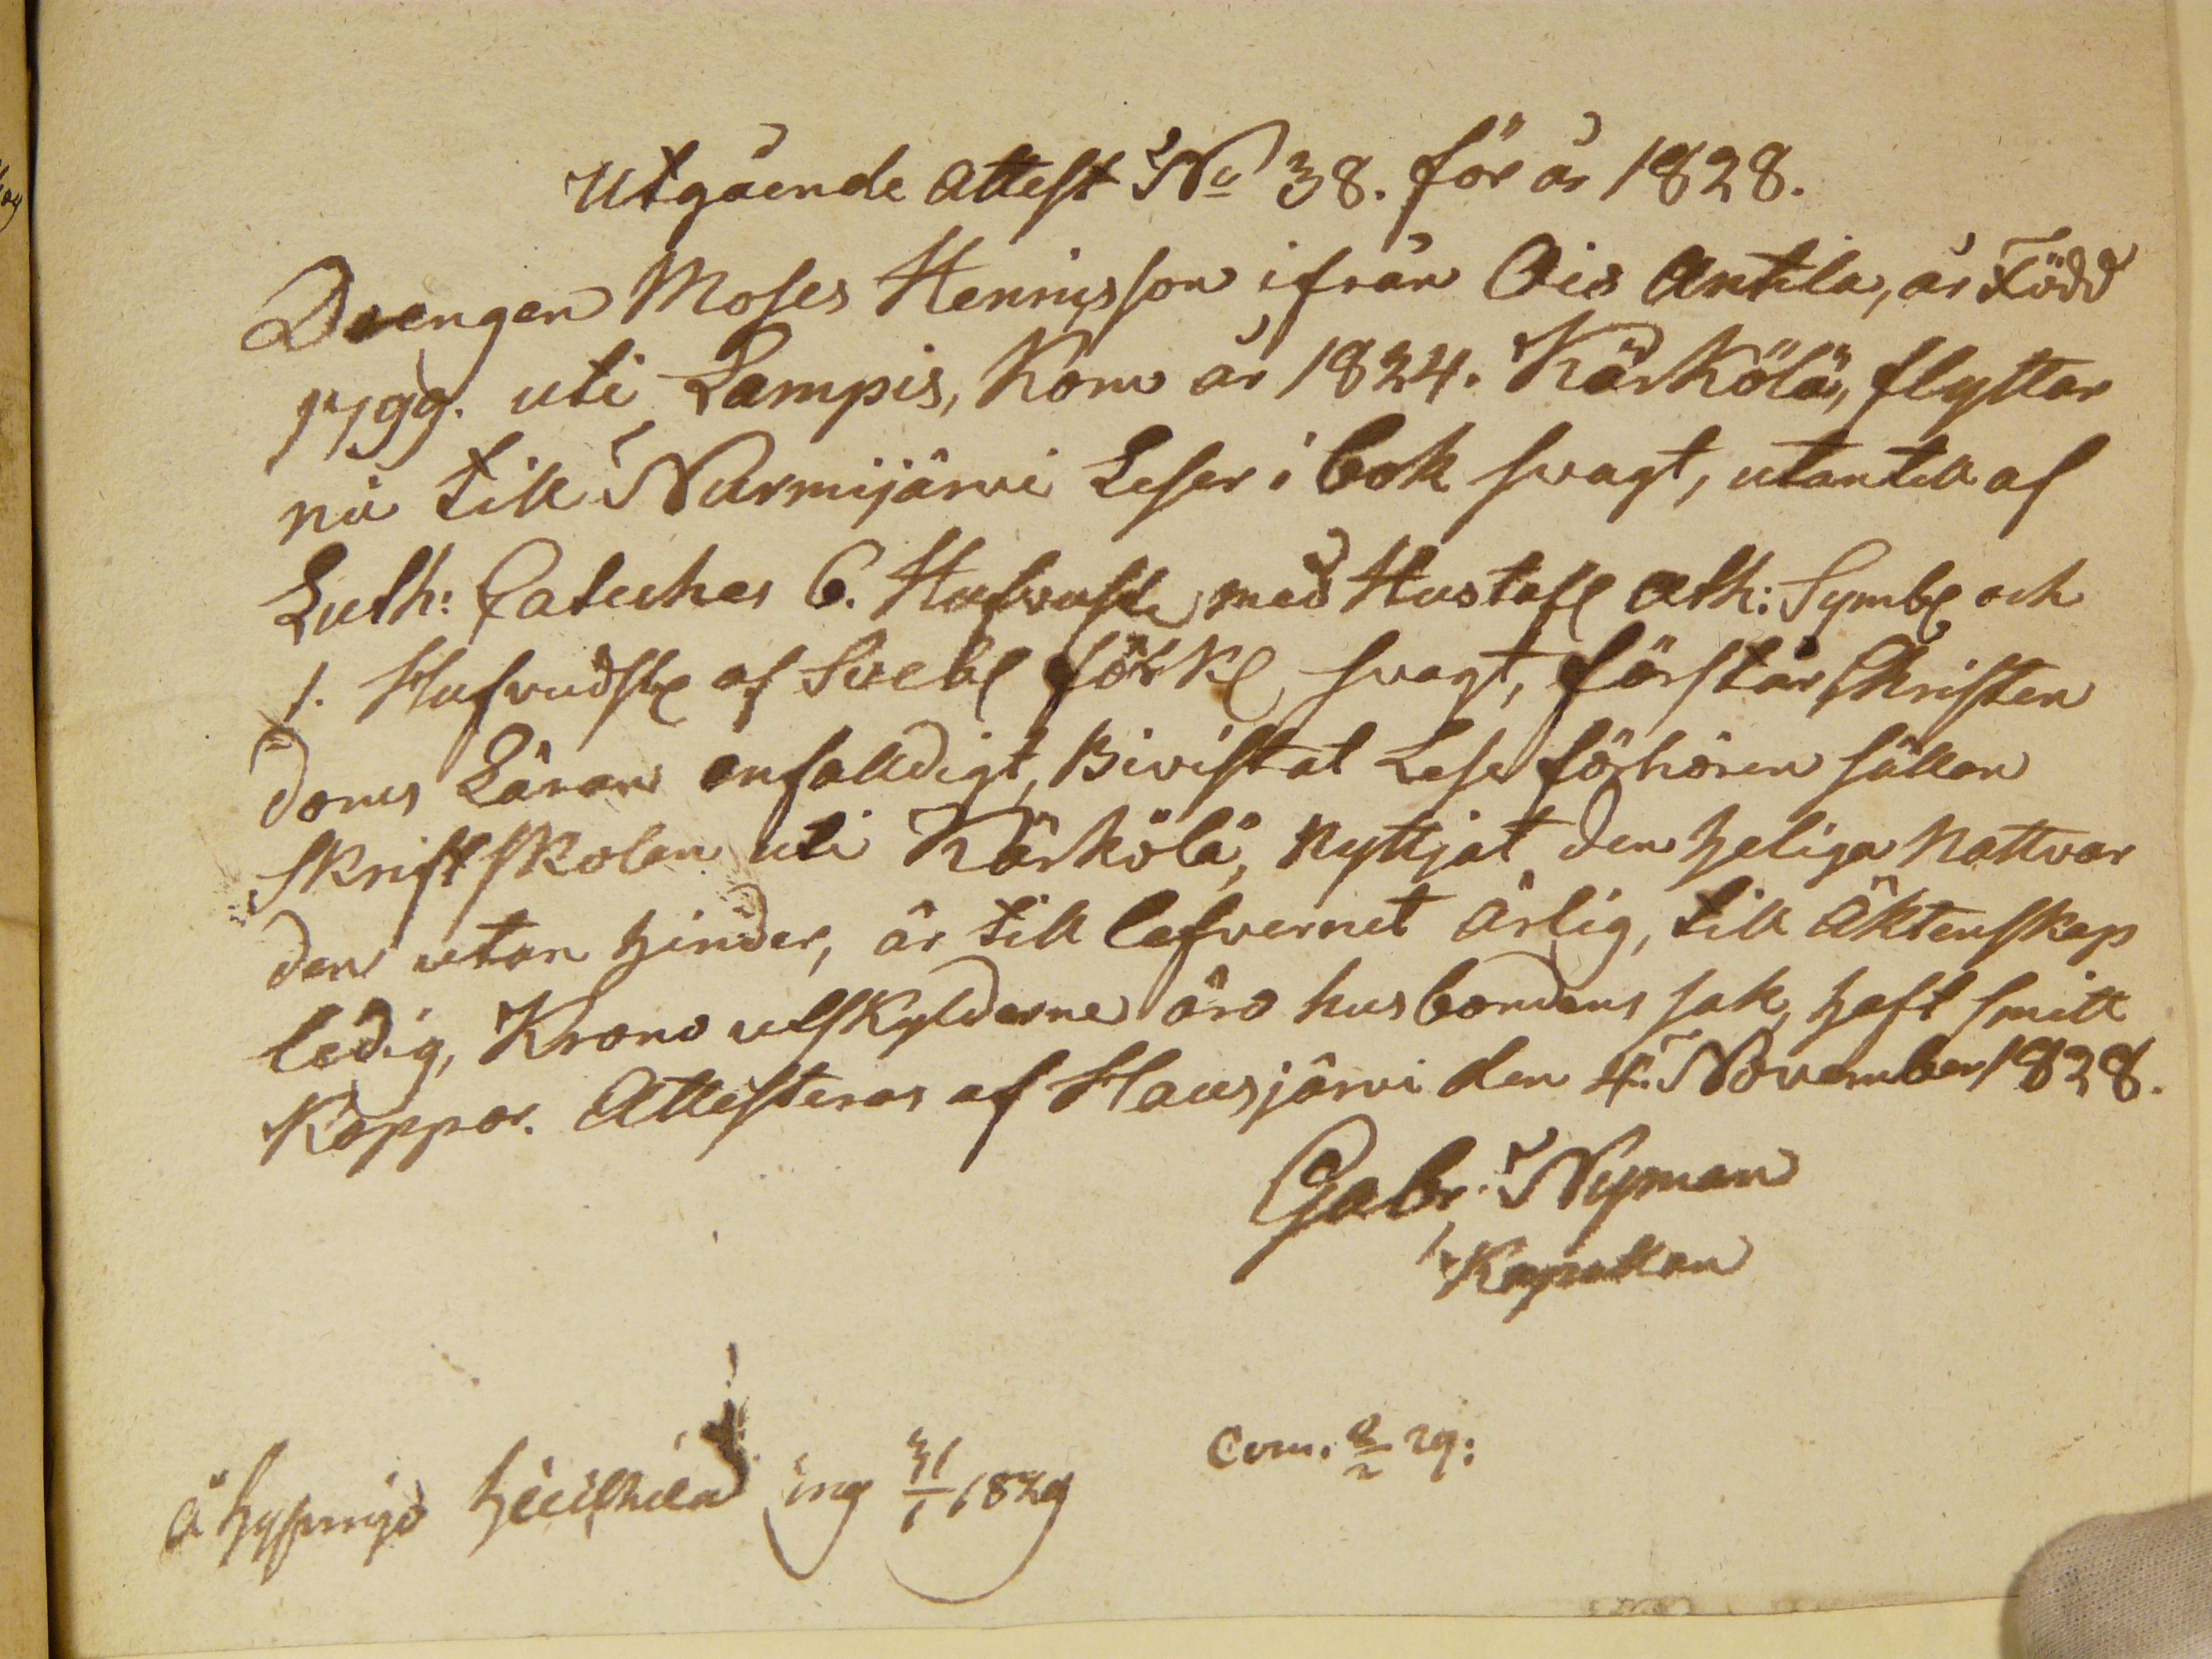 Utgående attest No 38. för år 1828.
Drengen Moses Henricsson ifrån Ois Antila, är Född
1799. uti Lampis, Kom år 1824. Kärkölä, flyttar
nu till Nurmijärvi Leser i bok svagt, utantill af
Luth: Cateches 6. Hufvudst. med Hustafl Ath: Symb. och
1. Hufvudst. af Svebl förkl, svagt, förstår Christen
doms Läran enfalldigt, Bivistat Lese förhören sällan
Skriftskolan uti Kärkölä, Nyttjat den heliga Nattvar
den utan hinder, är till lefvernet ärlig, till Äktenskap
ledig, Krono utskylderne äro husbondens sak, haft smitt
Koppor. Attesteras af Hausjärvi den 4. November 1828.
Gabr. Nyman
Kapellan
å ing 31/1 1829
Com. 29.